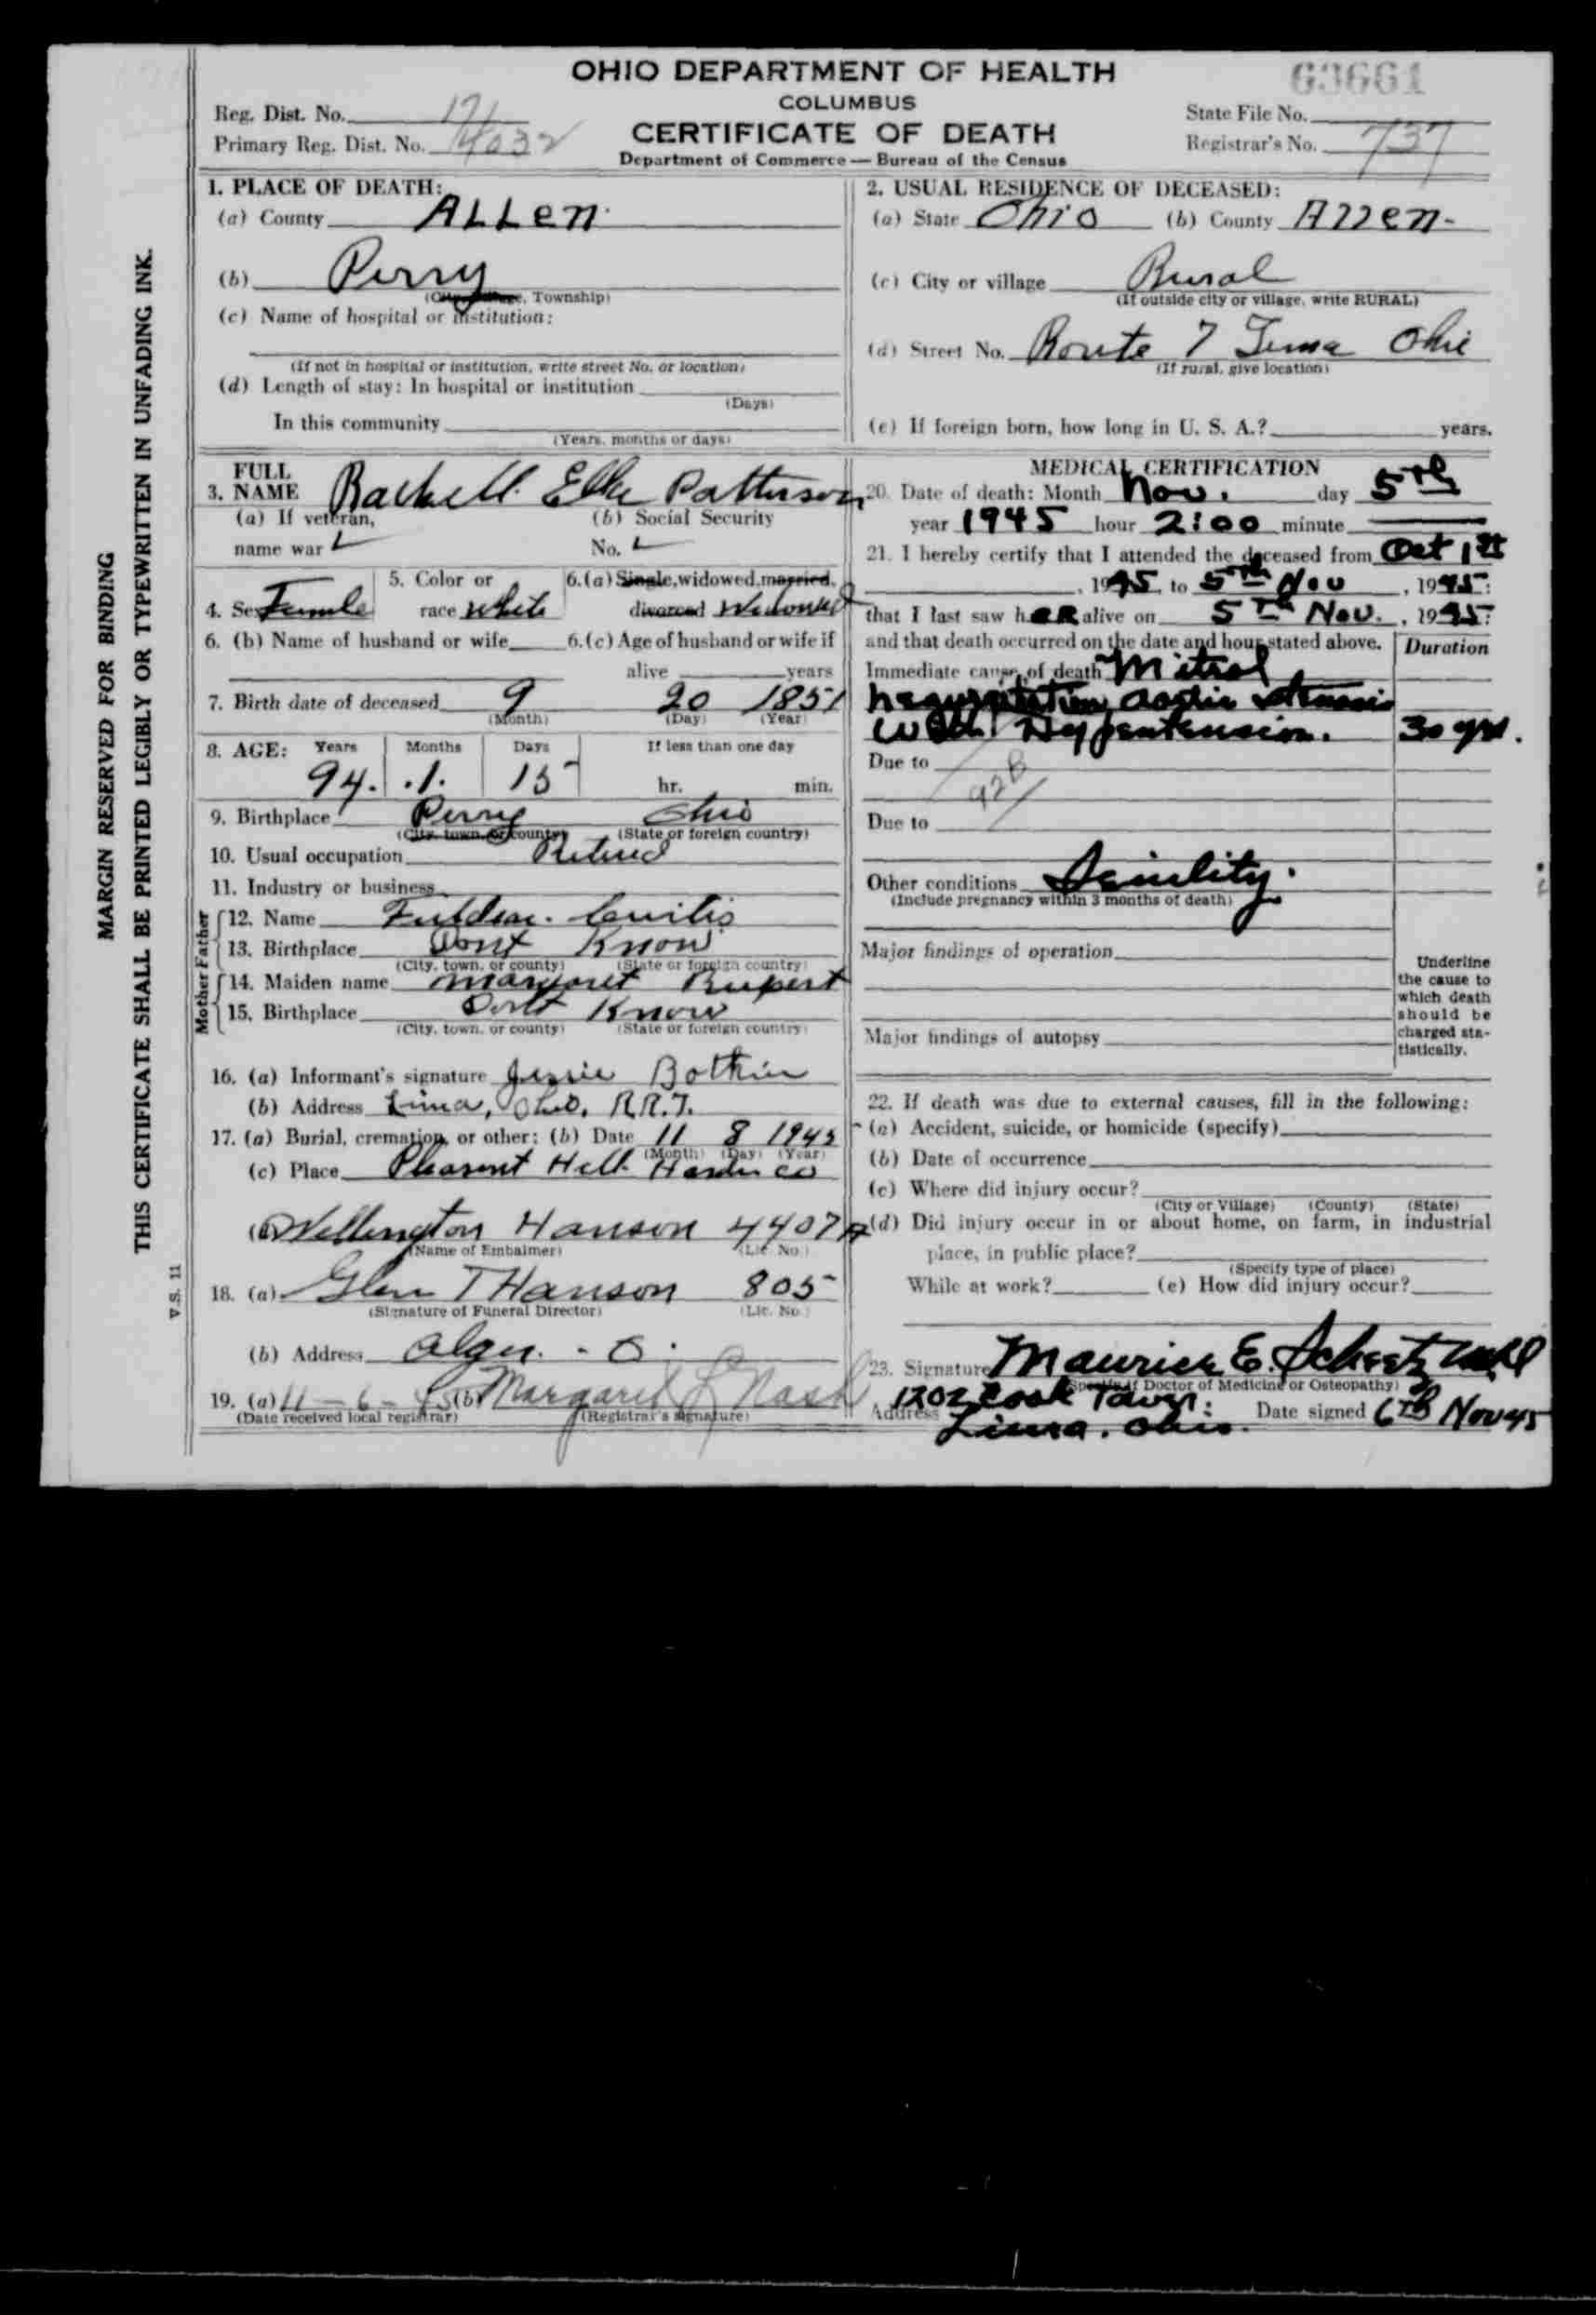 OHIO DEPARTMENT OF HEALTH
COLUMBUS
CERTIFICATE OF DEATH
Department of Commerce — Bureau of the Census
63661
Reg. Dist. No. 171
Primary Reg. Dist. No. 4032
State File No.
Registrar's No. 737
MARGIN RESERVED FOR BINDING
THIS CERTIFICATE SHALL BE PRINTED LEGIBLY OR TYPEWRITTEN IN UNFADING INK.
V.S. 11
1. PLACE OF DEATH:
(a) County ALLen
(b) Perry
, Township)
(c) Name of hospital or institution:
(If not in hospital or institution, write street No. or location)
(d) Length of stay: In hospital or institution
(Days)
In this community
(Years, months or days)
2. USUAL RESIDENCE OF DECEASED:
(a) State Ohio (b) County Allen
(c) City or village Rural
(If outside city or village, write RURAL)
(d) Street No. Route 7 Lima Ohio
(If rural, give location)
(e) If foreign born, how long in U. S. A.? years.
FULL
3. NAME Patterson
(a) If veteran, (b) Social Security
name war No.
5. Color or 6. (a) Single, widowed, married,
4. Sex Female race White divorced Widowed
6. (b) Name of husband or wife 6. (c) Age of husband or wife if
alive years
7. Birth date of deceased 9 20 1851
(Month) (Day) (Year)
8. AGE: Years Months Days If less than one day
94. .1. 15 hr. min.
9. Birthplace Perry Ohio
(City, town, or county) (State or foreign country)
10. Usual occupation Retired
11. Industry or business
Father
12. Name
13. Birthplace Dont Know
(City, town, or county) (State or foreign country)
Mother
14. Maiden name Margaret Rupert
15. Birthplace Dont Know
(City, town, or county) (State or foreign country)
16. (a) Informant's signature Jessie Botkin
(b) Address Lima, Ohio, R.R.7.
17. (a) Burial, cremation, or other: (b) Date 11 8 1945
(Month) (Day) (Year)
(c) Place Pleasant Hill Hardin Co
Wellington Hanson 4407A
(Name of Embalmer) (Lic. No.)
18. (a) Glen T Hanson 805
(Signature of Funeral Director) (Lic. No.)
(b) Address Alger. - O.
19. (a) 11-6-45 (b) Margaret L Nash
(Date received local registrar) (Registrar's signature)
MEDICAL CERTIFICATION
20. Date of death: Month Nov. day 5th
year 1945 hour 2:00 minute
21. I hereby certify that I attended the deceased from Oct 1st
, 1945, to 5th Nov , 1945;
that I last saw hER alive on 5th Nov. , 1945;
and that death occurred on the date and hour stated above. Duration
Immediate cause of death Mitral
regurgitation, aortic stenosis
with Hypertension. 30 yrs.
Due to
92B
Due to
Other conditions Senility.
(Include pregnancy within 3 months of death)
Major findings of operation
Major findings of autopsy
Underline
the cause to
which death
should be
charged sta-
tistically.
22. If death was due to external causes, fill in the following:
(a) Accident, suicide, or homicide (specify)
(b) Date of occurrence
(c) Where did injury occur?
(City or Village) (County) (State)
(d) Did injury occur in or about home, on farm, in industrial
place, in public place?
(Specify type of place)
While at work? (e) How did injury occur?
23. Signature Maurice E.
(Specify if Doctor of Medicine or Osteopathy)
Address 1202 Cook Tower: Date signed 6th Nov 45
Lima. Ohio.